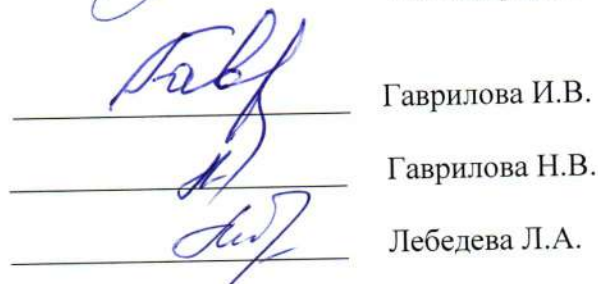 Гаврилова И.В.
Гаврилова Н.В.
Лебедева Л.А.